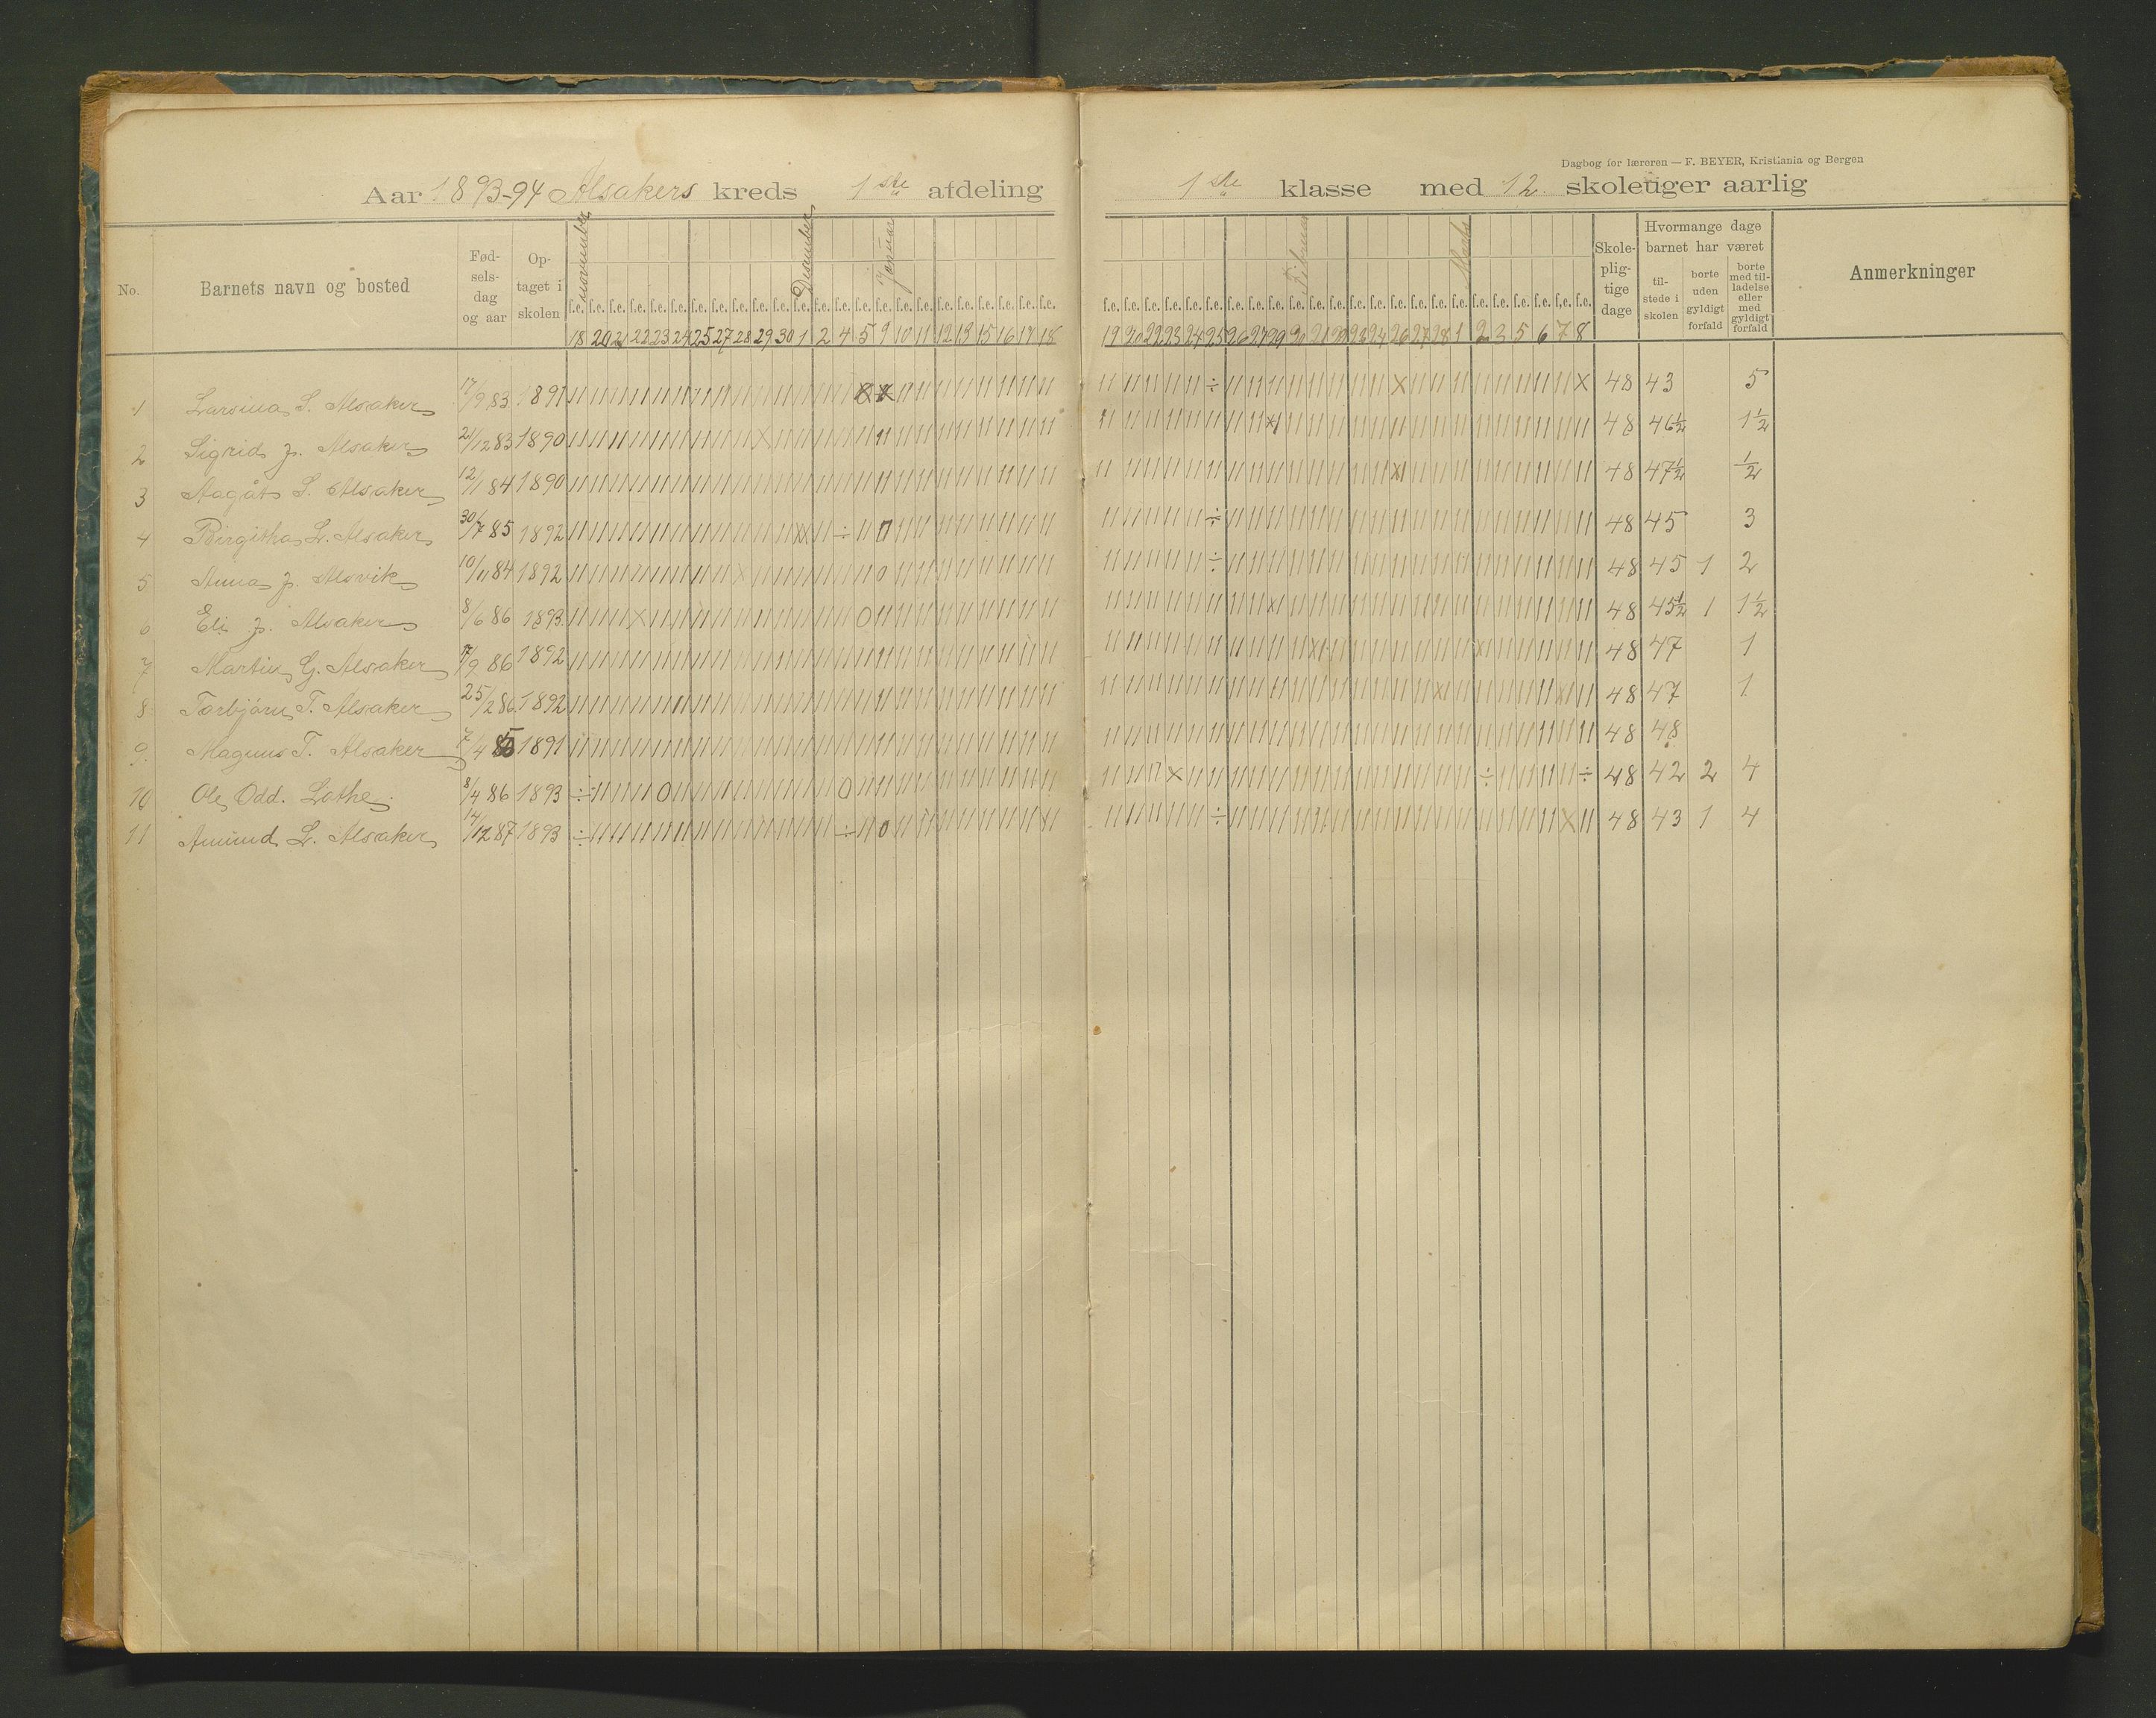 Dagbog for læreren — F. BEYER, Kristiania og Bergen
Aar 1893-94 Alsakers kreds 1ste afdeling 1ste klasse med 12 skoleuger aarlig
No. Barnets navn og bosted Fød- sels- dag og aar Op- taget i skolen november Desember Januar Februar Marts Skole- plig- tige dage Hvormange dage barnet har været til- stede i skolen borte uden gyldigt forfald borte med til- ladelse eller med gyldigt forfald Anmerkninger
f.e. f.e. f.e. f.e. f.e. f.e. f.e. f.e. f.e. f.e. f.e. f.e. f.e. f.e. f.e. f.e. f.e. f.e. f.e. f.e. f.e. f.e. f.e. f.e. f.e. f.e. f.e. f.e. f.e. f.e. f.e. f.e. f.e. f.e. f.e. f.e. f.e. f.e. f.e. f.e. f.e. f.e. f.e. f.e. f.e. f.e. f.e. f.e.
18 20 21 22 23 24 25 27 28 29 30 1 2 4 5 9 10 11 12 13 15 16 17 18 19 20 22 23 24 25 26 27 29 20 21 22 23 24 26 27 28 1 2 3 5 6 7 8
1 Larsina S. Alsaker 17/9 83 1891 48 43 5
2 Sigrid J. Alsaker 21/12 83 1890 48 46½ 1½
3 Aagåt S. Alsaker 12/1 84 1890 48 47½ ½
4 Birgitha L. Alsaker 30/7 85 1892 48 45 3
5 Anna J. Alsvik 10/11 84 1892 48 45 1 2
6 Eli J. Alsaker 8/6 86 1893 48 45½ 1 1½
7 Martin G. Alsaker 17/9 86 1892 48 47 1
8 Torbjørn T. Alsaker 25/2 86 1892 48 47 1
9 Magnus T. Alsaker 7/4 85 1891 48 48
10 Ole Odd. Lothe 8/4 86 1893 48 42 2 4
11 Amund L. Alsaker 14/12 87 1893 48 43 1 4